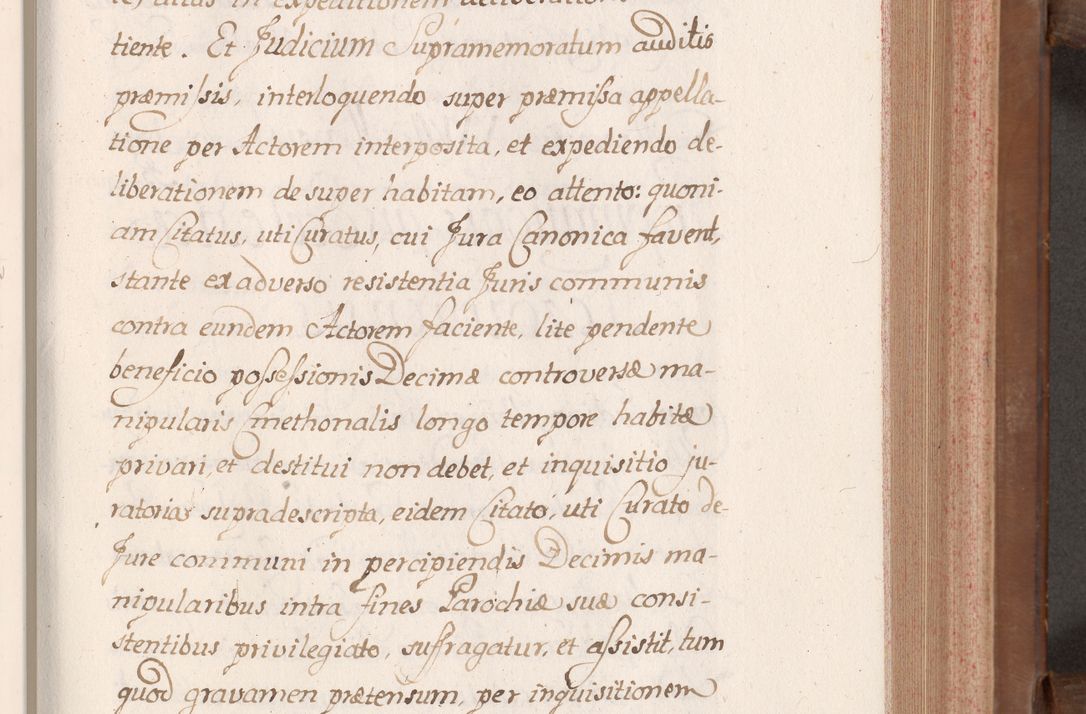 in expeditionem
tiente. Et Judicium Supramemoratum auditis
præmissis, interloquendo super præmissa appella-
tione per Actorem interposita, et expediendo de-
liberationem desuper habitam, eo attento: quoni-
am Citatus, uti Curatus, cui Jura Canonica favent,
stante ex adverso resistentia Juris communis
contra eundem Actorem faciente, lite pendente
beneficio possessionis Decimæ controversæ ma-
nipularis Cmethonalis longo tempore habitæ
privari, et destitui non debet, et inquisitio ju-
ratorias supradescripta, eidem Citato, uti Curato de-
Jure communi in percipiendis Decimis ma-
nipularibus intra fines Parochiæ suæ consi-
stentibus privilegiato, suffragatur, et assistit, tum
quod gravamen prætensum, per inquisitionem